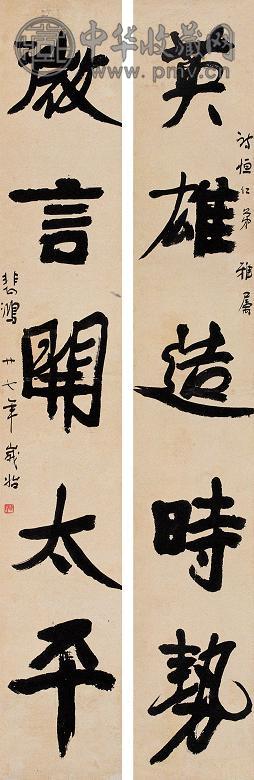 中华收藏网
www.pmv.cn
英雄造時勢
恒仁弟 雅屬
言開太平
悲鴻 廿七年歲始